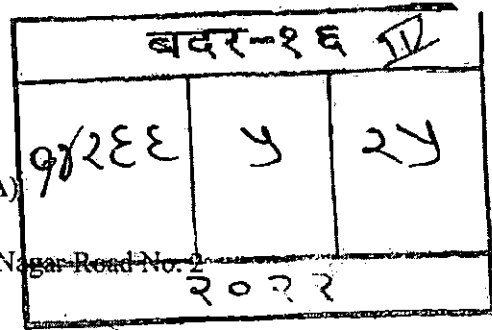 बदर-१६ III
१४२६६ ५ २५
A)
Nagar Road No. 2
२०२२